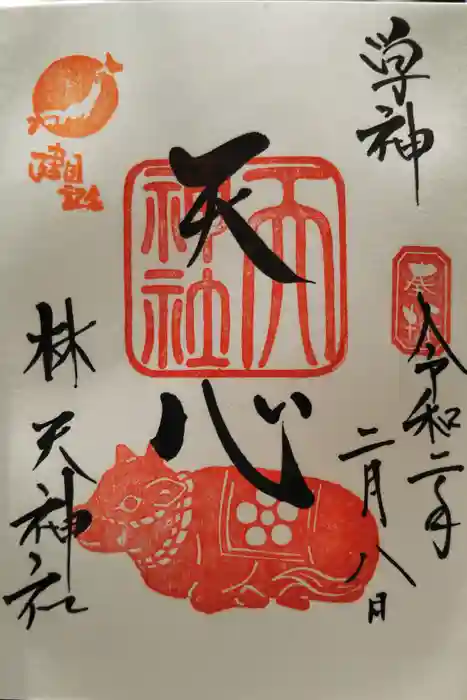 学神
奉拝
令和二年
二月八日
天心
天神社
林天神社